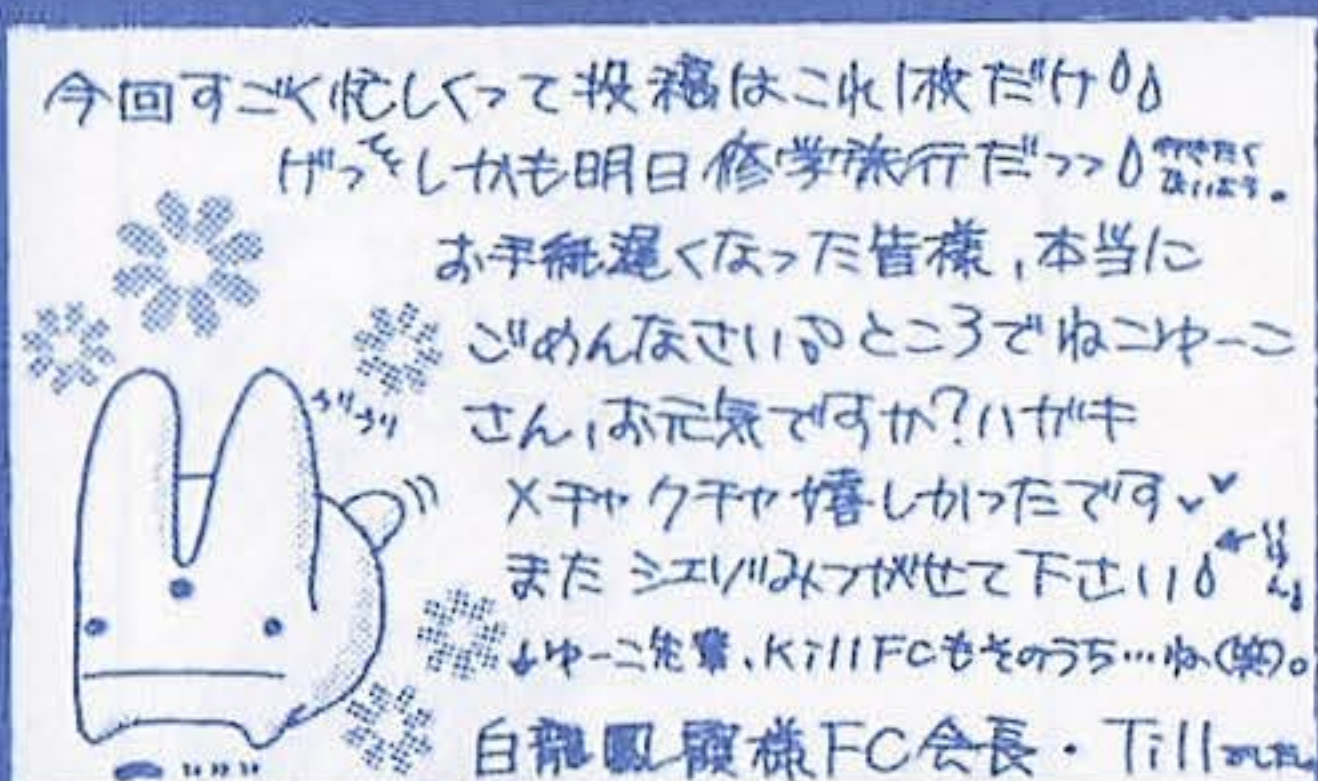 今回すごく忙しくって投稿はこれ1枚だけ
げっっしかも明日修学旅行だっっ
行きたくないよう。
お手紙遅くなった皆様、本当に
ごめんなさい ところでねこゆーこ
さん、お元気ですか?ハガキ
メチャクチャ嬉しかったです
また シエゾみつがせて下さい
ゆーこ先輩、KillFCもそのうち…ね(笑)。
白龍鳳 様FC会長・Tillでした。